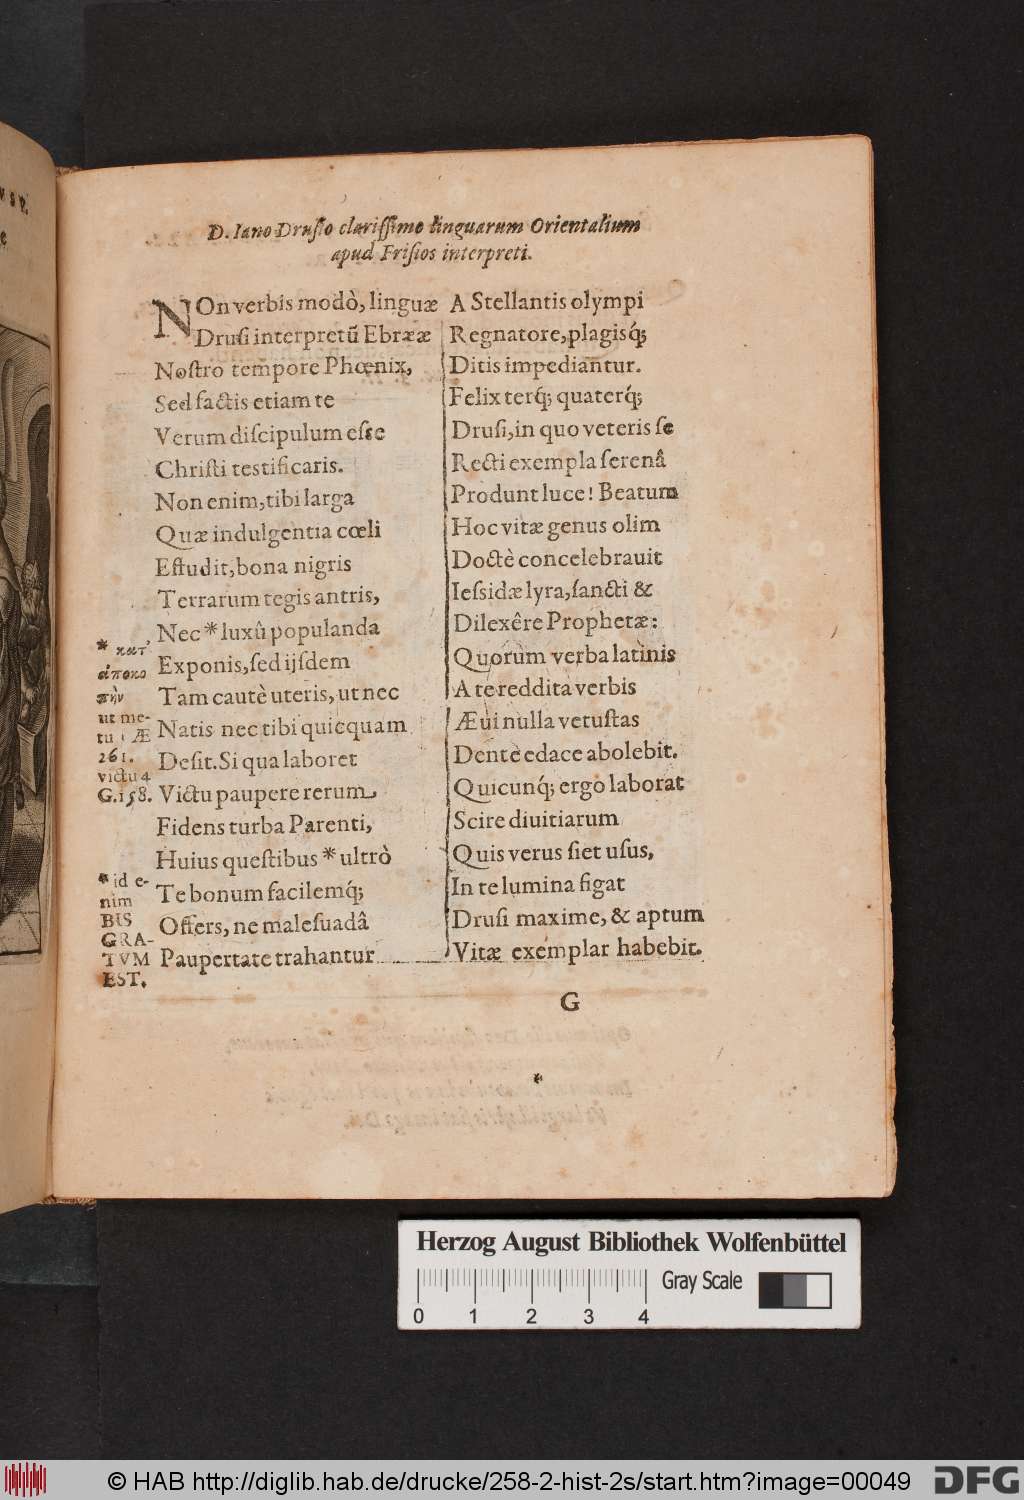 D. Iano Drusio clarissimo linguarum Orientalium
apud Frisios interpreti.
NOn verbis modò, linguæ
Drusi interpretū Ebrææ
Nostro tempore Phœnix,
Sed factis etiam te
Verum discipulum esse
Christi testificaris.
Non enim, tibi larga
Quæ indulgentia cœli
Effudit, bona nigris
Terrarum tegis antris,
Nec * luxû populanda
Exponis, sed ijsdem
Tam cautè uteris, ut nec
Natis nec tibi quicquam
Desit. Si qua laboret
Victu paupere rerum
Fidens turba Parenti,
Huius questibus * ultrò
Te bonum facilemq́;
Offers, ne malesuadâ
Paupertate trahantur
* κατ᾽
ἀποκο
πὴν
ut me-
tu Æ
261.
victu 4
G. 158.
* id e-
nim
BIS
GRA-
TVM
EST.
A Stellantis olympi
Regnatore, plagisq́;
Ditis impediantur.
Felix terq́; quaterq́;
Drusi, in quo veteris se
Recti exempla serenâ
Produnt luce! Beatum
Hoc vitæ genus olim
Doctè concelebrauit
Iessidæ lyra, sancti &
Dilexêre Prophetæ:
Quorum verba latinis
A te reddita verbis
Æui nulla vetustas
Dente edace abolebit.
Quicunq́; ergo laborat
Scire diuitiarum
Quis verus siet usus,
In te lumina figat
Drusi maxime, & aptum
Vitæ exemplar habebit.
G
Herzog August Bibliothek Wolfenbüttel
Gray Scale
0 1 2 3 4
© HAB http://diglib.hab.de/drucke/258-2-hist-2s/start.htm?image=00049
DFG